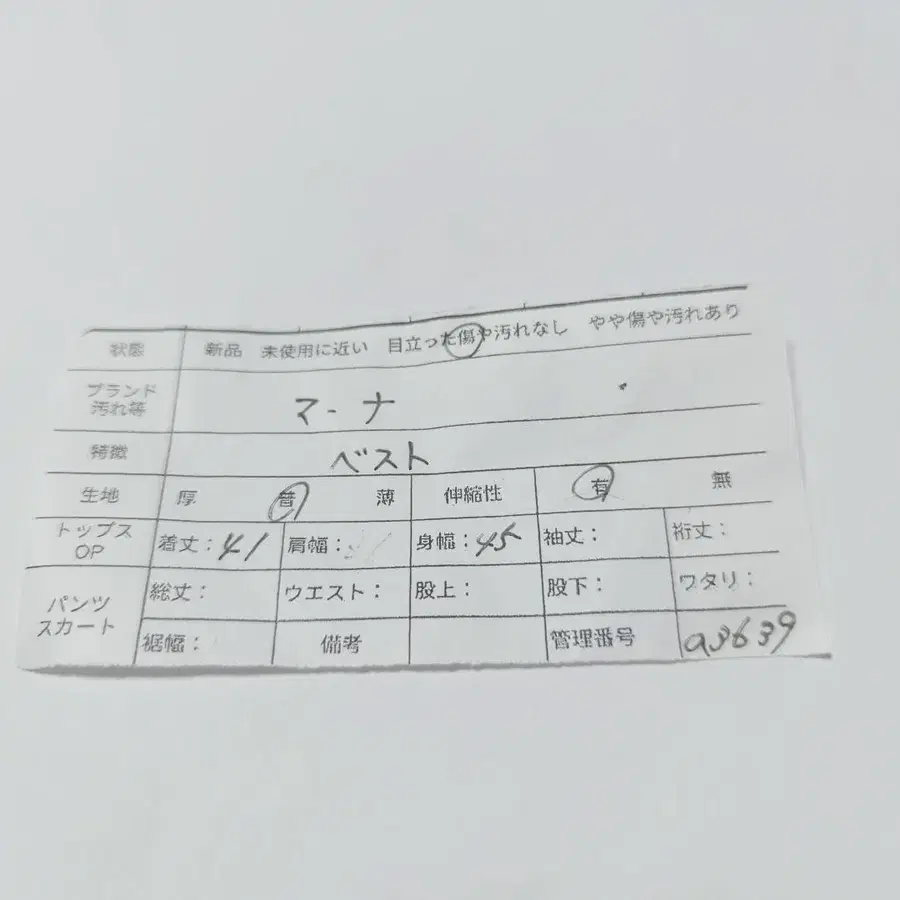 状態 新品 未使用に近い 目立った傷や汚れなし やや傷や汚れあり
ブランド
汚れ等
マーナ
特徴 ベスト
生地 厚 普 薄 伸縮性 有 無
トップス
OP
着丈：41 肩幅： 身幅：45 袖丈： 裄丈：
パンツ
スカート
総丈： ウエスト： 股上： 股下： ワタリ：
裾幅： 備考 管理番号 a3639